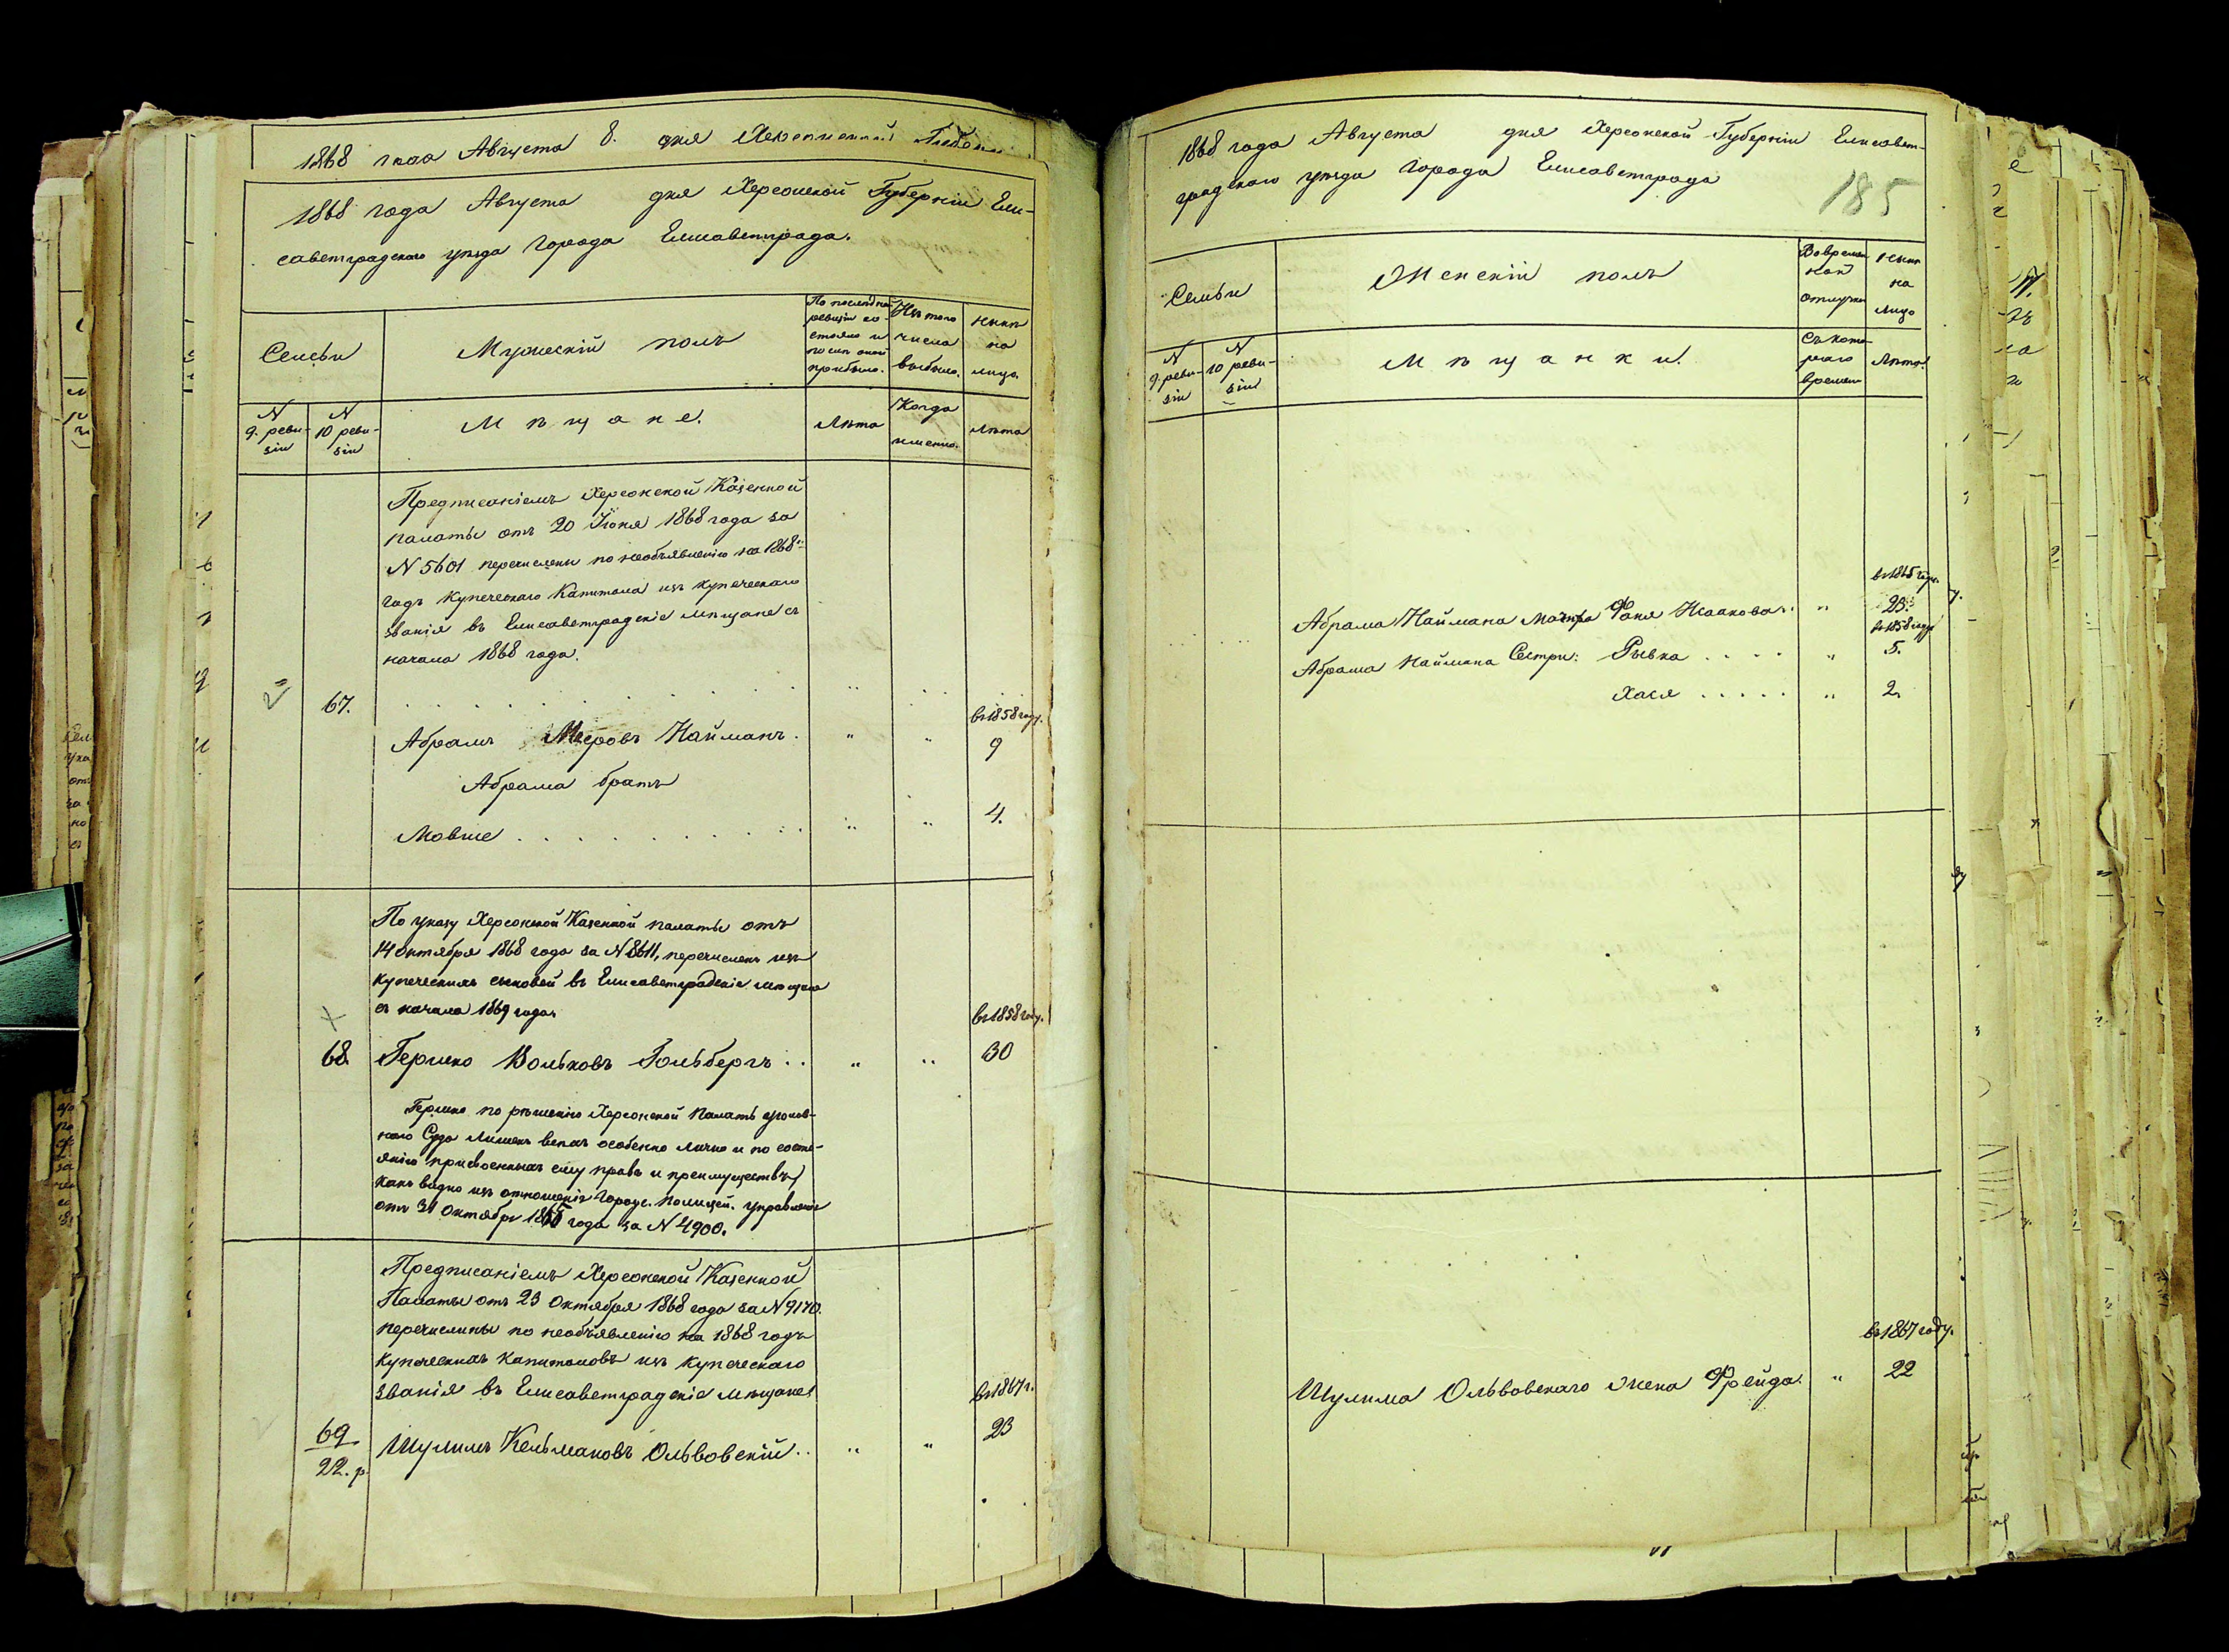 1868 года Августа 8. дня Херсонской Губерніи
1868 года Августа дня Херсонской Губерніи Ели-
саветградскаго уѣзда Города Елисаветграда.
Семьи
Мужескій полъ
По послѣдней ревизіи со-
стояло и
послѣ оной
прибыло.
Изъ того
числа
выбыло.
Нынѣ
на
лицо.
N
9. реви-
зіи
N
10 реви-
зіи
Мѣщане.
Лѣта
Когда
именно.
Лѣта
Предписаніемъ Херсонской Казенной
палаты отъ 20 Іюня 1868 года за
N 5601 перечислены по необъявленію на 1868й
годъ купеческаго Капитала изъ купеческаго
званія въ Елисаветградскіе мѣщане съ
начала 1868 года.
67.
въ 1858 году.
Абрамъ Меровъ Найманъ. " " 9
Абрама братъ
Мовше . . . . . . . . . . " " 4.
По указу Херсонской Казенной палаты отъ
14 Октября 1868 года за N 8611, перечисленъ изъ
купеческихъ сыновей въ Елисаветградскіе мѣщане
съ начала 1869 года.
въ 1858 году.
68. Гершко Вольковъ Гольбергъ . . " " 30
Гершко по рѣшенію Херсонской Палаты уголов-
наго Суда лишенъ всѣхъ особенно лично и по состо-
янію присвоенныхъ ему правъ и преимуществъ,
какъ видно изъ отношенія Городс. полицей. управленія
отъ 31 Октября 1865 года за N 4900.
Предписаніемъ Херсонской Казенной
Палаты отъ 23 Октября 1868 года за N 9170.
перечислены по необъявленію на 1868 годъ
купеческихъ капиталовъ изъ купеческаго
званія въ Елисаветградскіе мѣщане
въ 1867 г.
69
22. р. Шулимъ Кельмановъ Ольвовскій . . " " 23
1868 года Августа дня Херсонской Губерніи Елисавет-
градскаго уѣзда Города Елисаветграда
185
Семьи
Женскій полъ
Во времен-
ной
отлучкѣ
Нынѣ
на
лицо
N
9. реви-
зіи
N
10 реви-
зіи
Мѣщанки.
Съ кото-
раго
времени
Лѣта.
въ 1865 году.
Абрама Наймана Матьра Фаня Исаакова . " 23.
въ 1858 году
Абрама Наймана Сестры: Рывка . . . . " 5.
Хася . . . . . " 2.
въ 1867 году.
Шулима Ольвовскаго жена Фрейда. " 22